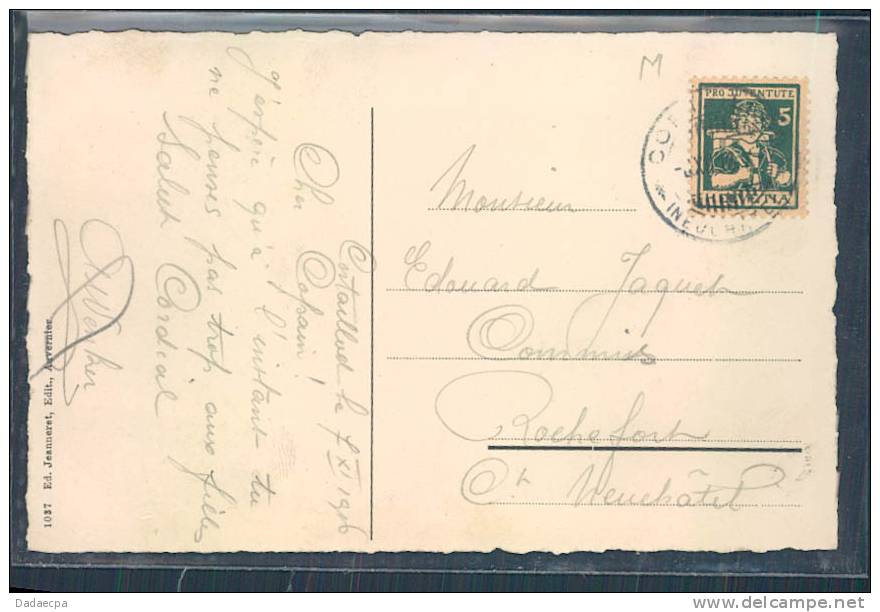 Cortaillod le 7 XI 1916
Cher Copain!
J'espère qu'à l'instant tu
ne penses pas trop aux filles
Salut Cordial
1037 Ed. Jeanneret, Edit., Auvernier
M
PRO JUVENTUTE
5
HELVETIA
Monsieur
Edouard Jaquet
Commis
Rochefort
Ct Neuchâtel
Dadaecpa
http://www.delcampe.net